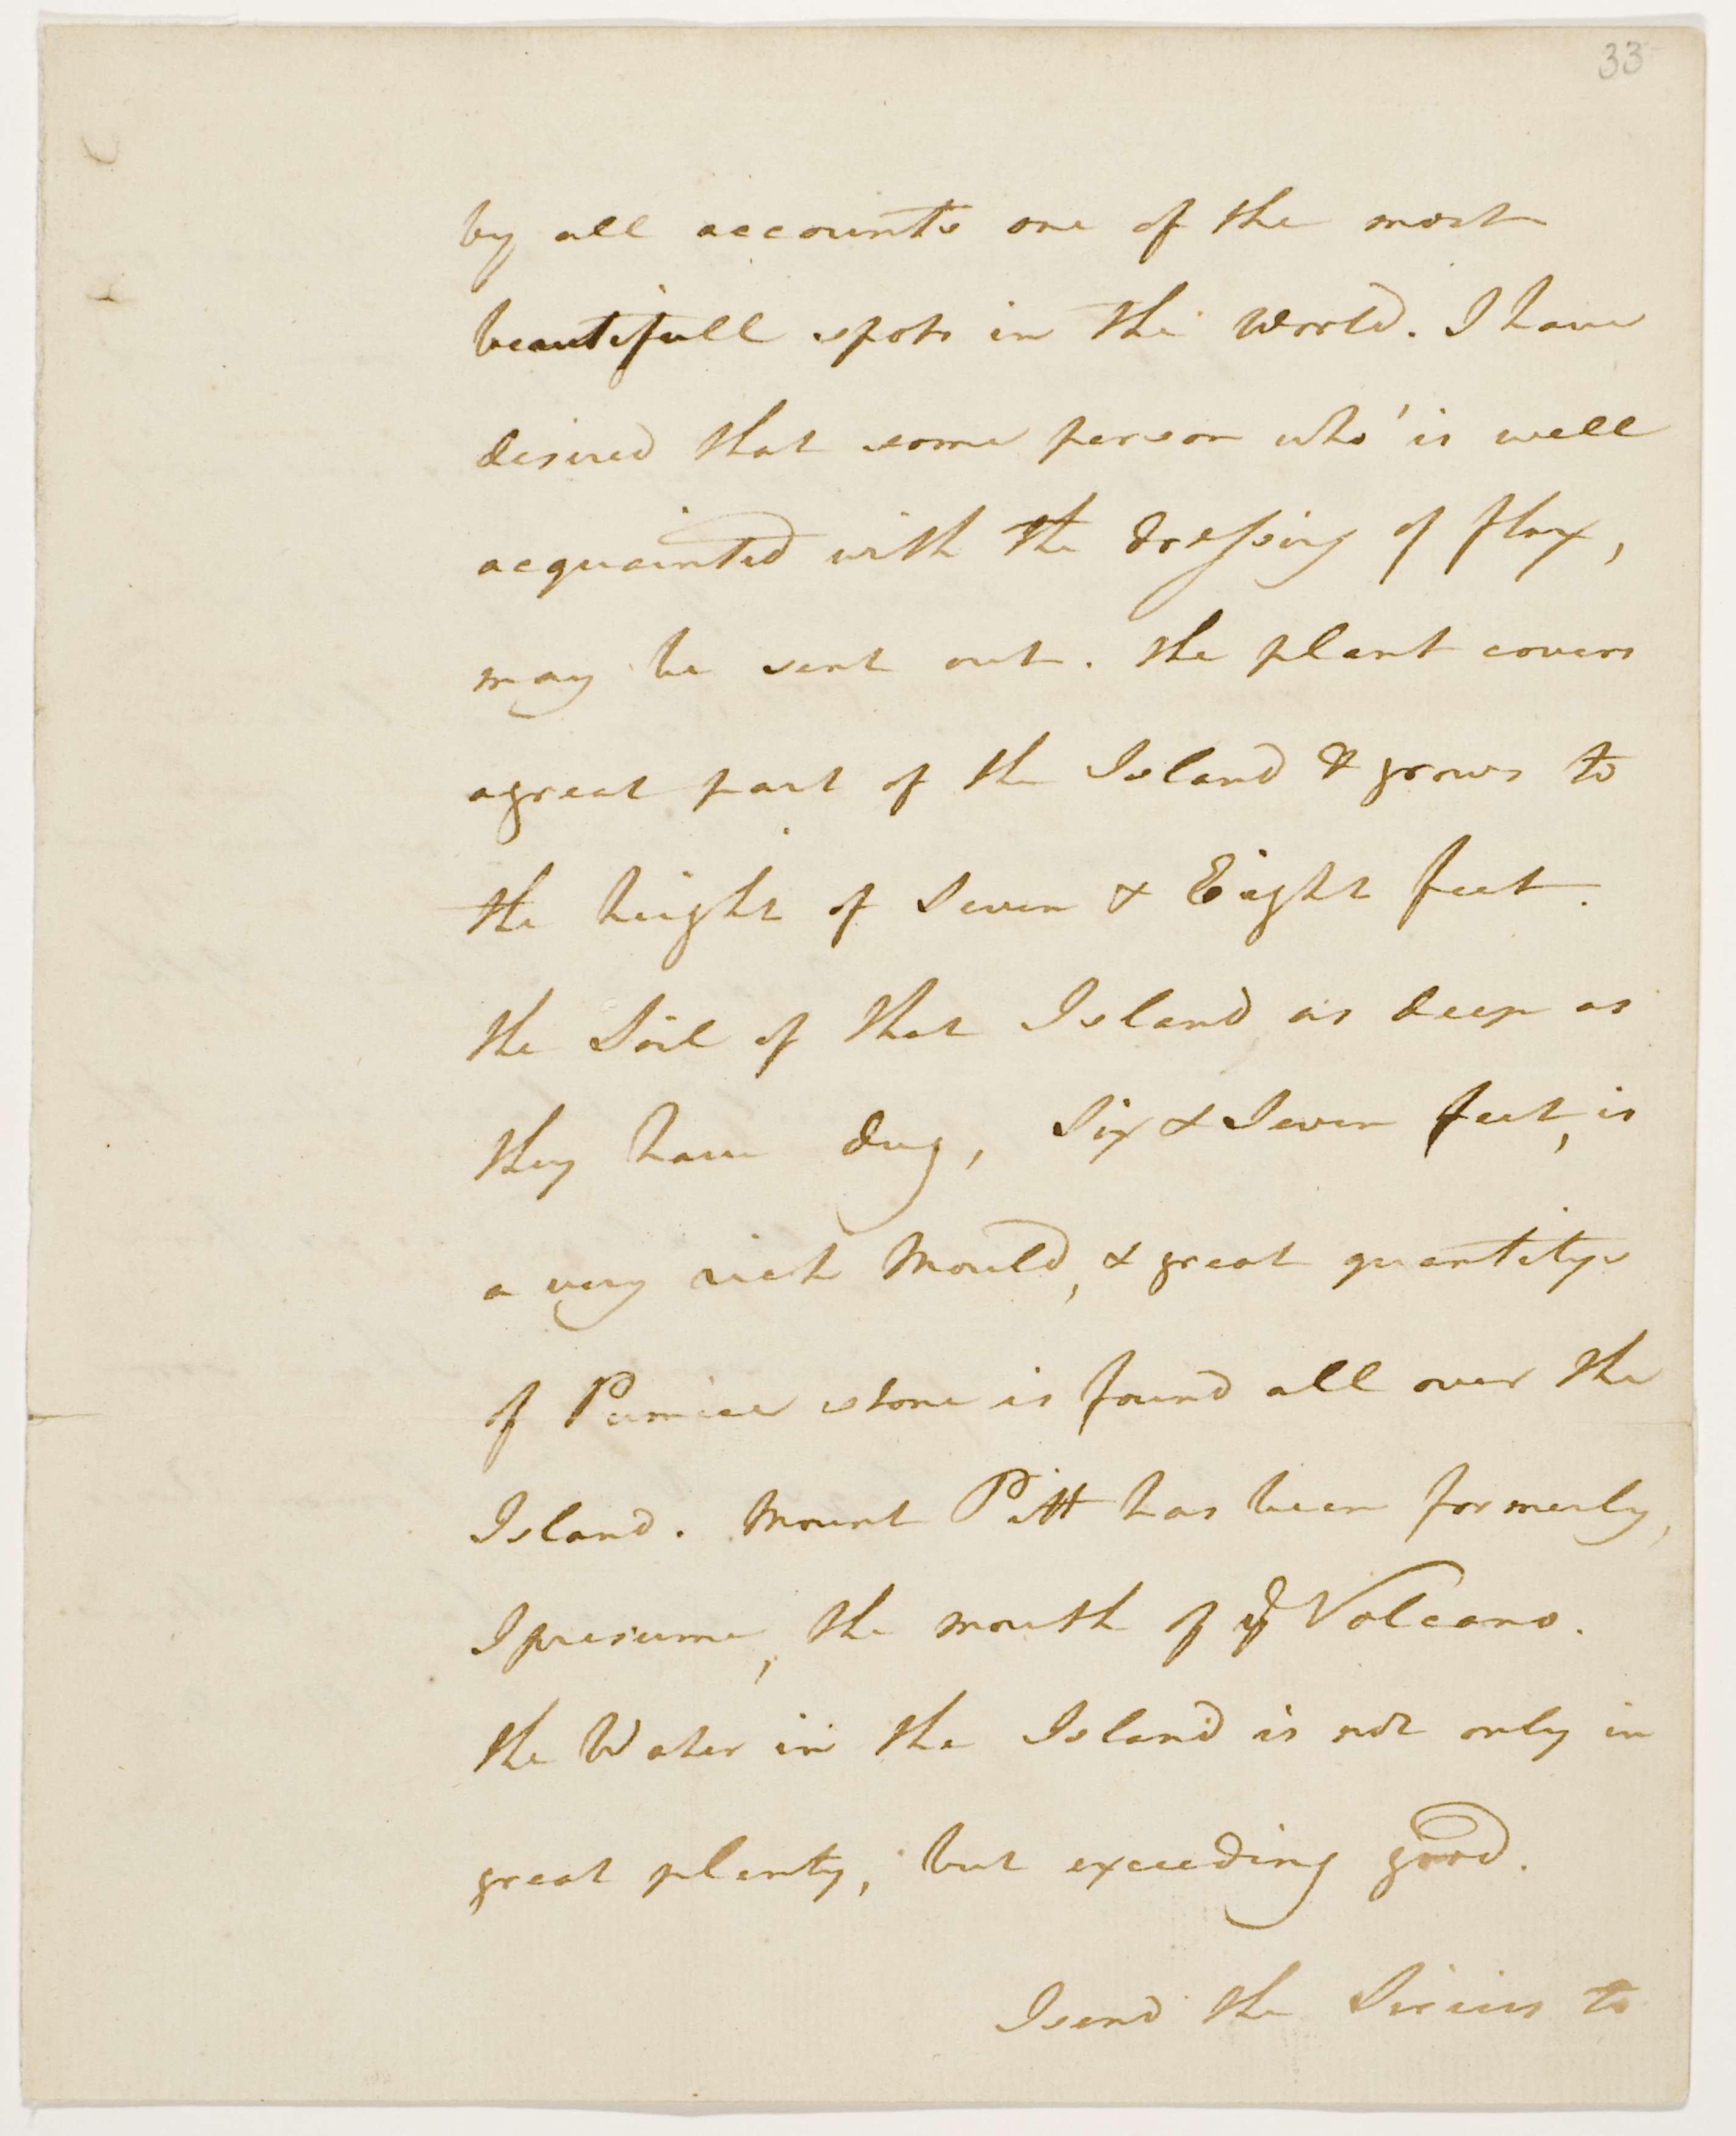 33
by all accounts one of the most
beautifull spots in the World. I have
desired that some person who is well
acquainted with the dressing of flax,
may be sent out. the plant covers
a great part of the Island & grows to
the height of Seven & Eight feet.
the Soil of that Island as deep as
they have dug, Six & Seven feet, is
a very rich Mould, & great quantitys
of Pumice stone is found all over the
Island. Mount Pitt has been formerly,
I presume, the mouth of ye Volcano.
the Water in the Island is not only in
great plenty, but exceeding good.
I send the Sirius to